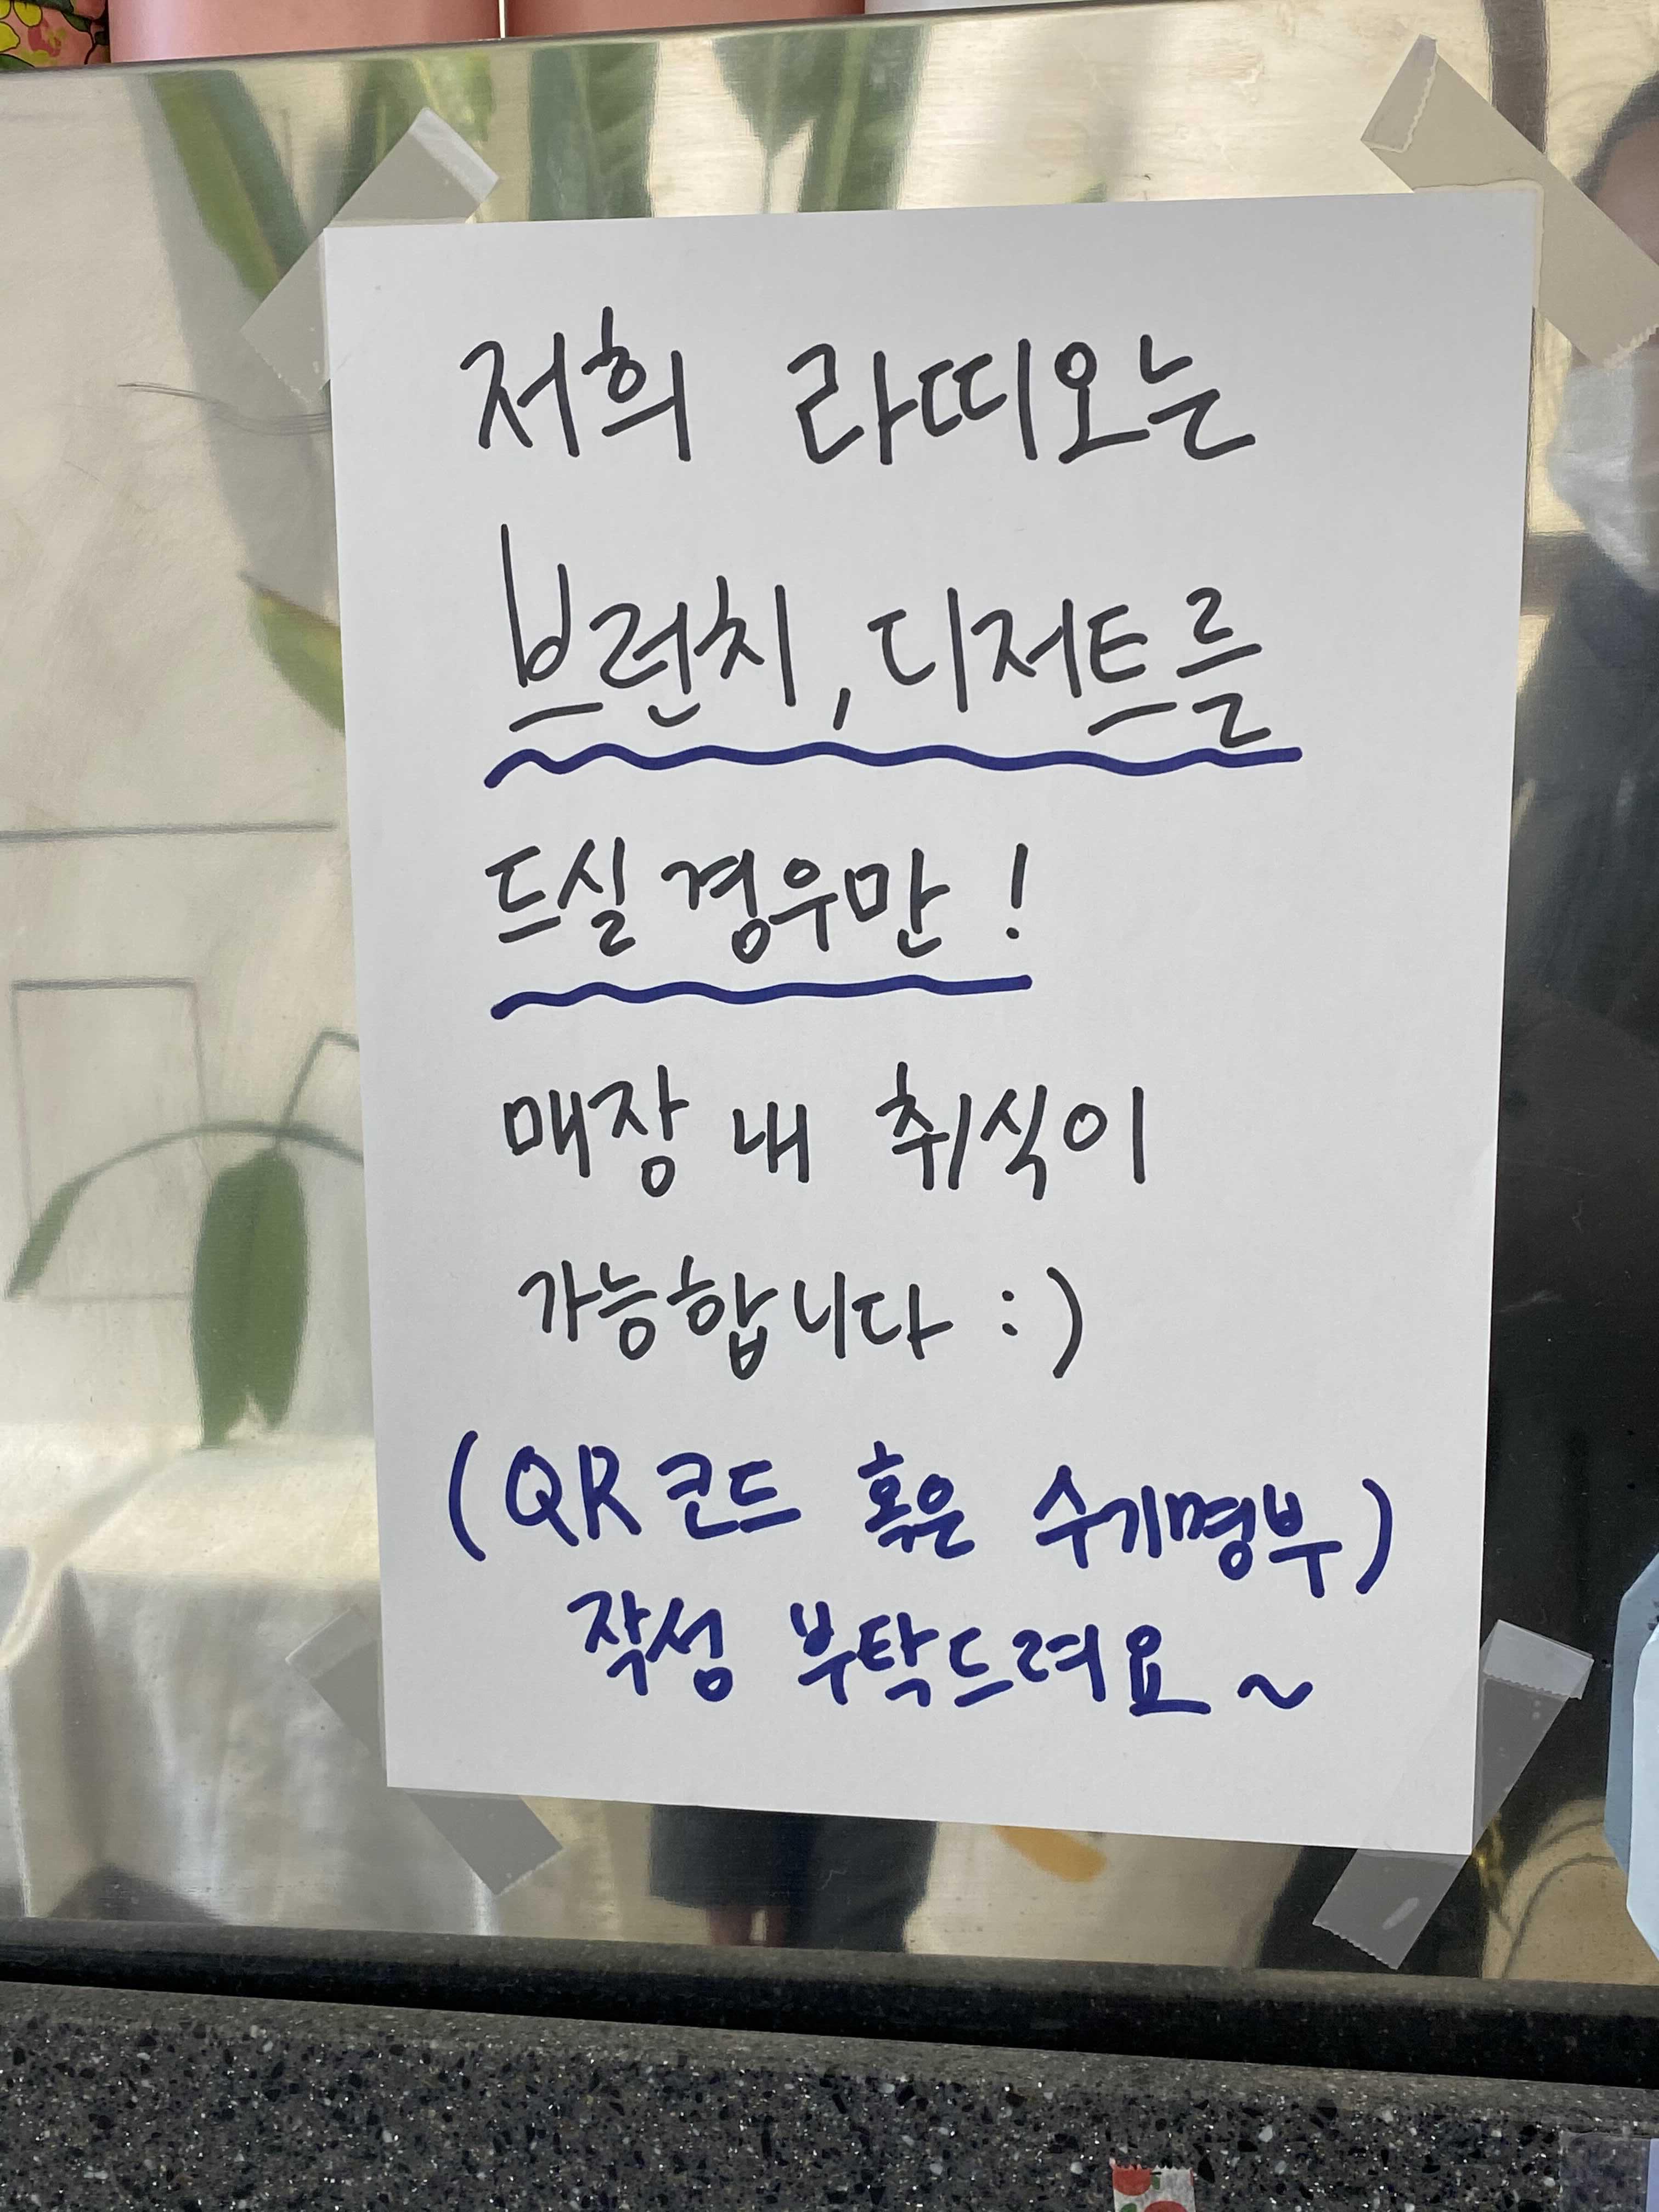 저희 라띠오는
브런치, 디저트를
드실 경우만!
매장 내 취식이
가능합니다 :)
(QR코드 혹은 수기명부)
작성 부탁드려요~